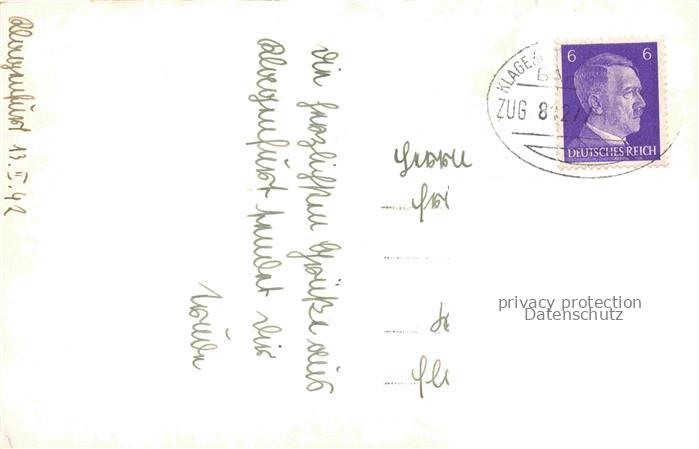 Klagenfurt 13.II.42
Die herzlichsten Grüße aus
Klagenfurt sendet Dir
Herrn
KLAGEN
ZUG 8
6 6
DEUTSCHES REICH
privacy protection
Datenschutz